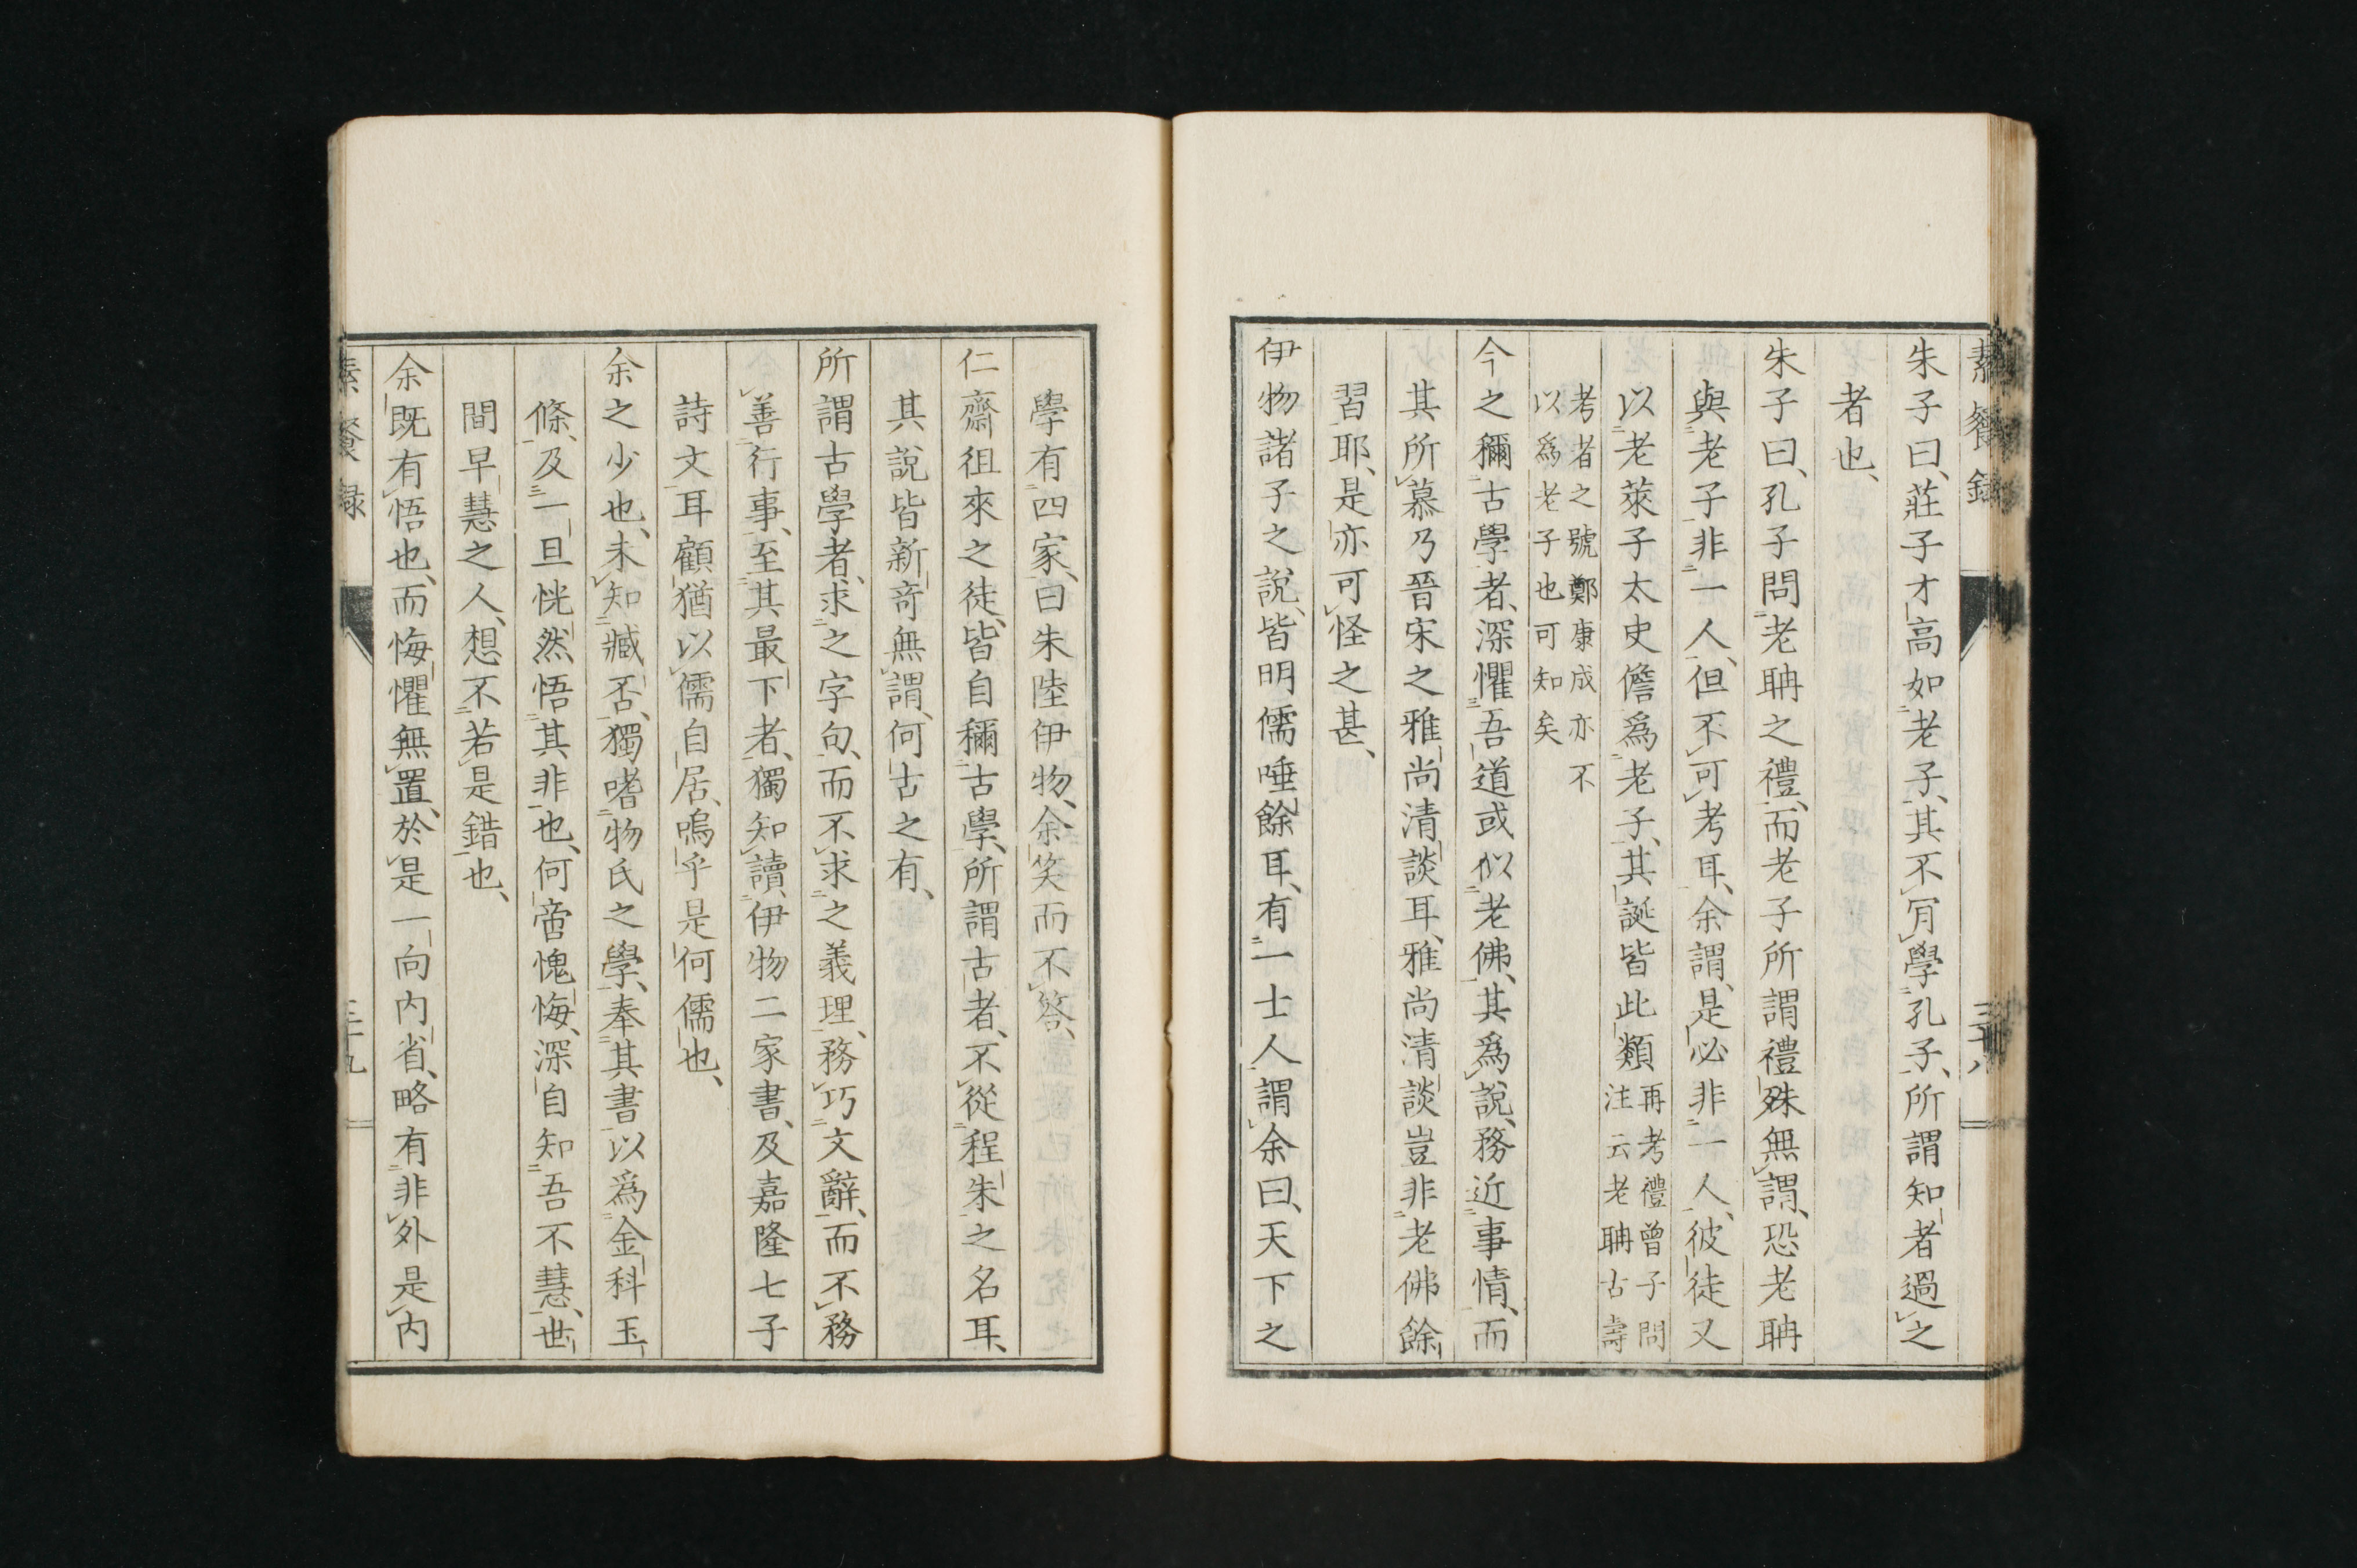 素餐録
三十八
朱子曰、莊子才高如老子、其不肯學孔子、所謂知者過之
者也、
朱子曰、孔子問老聃之禮、而老子所謂禮殊無謂、恐老聃
與老子非一人、但不可考耳、余謂、是必非一人、彼徒又
以老萊子太史儋爲老子、其誕皆此類再考禮曾子問
注云老聃古壽
考者之號鄭康成亦不
以爲老子也可知矣
今之稱古學者、深懼吾道或似老佛、其爲說、務近事情、而
其所慕乃晉宋之雅尚清談耳、雅尚清談豈非老佛餘
習耶、是亦可怪之甚、
伊物諸子之說、皆明儒唾餘耳、有一士人、謂余曰、天下之
學有四家、曰朱陸伊物、余笑而不答、
仁齋徂來之徒、皆自稱古學、所謂古者、不從程朱之名耳、
其說皆新奇無謂、何古之有、
所謂古學者、求之字句、而不求之義理、務巧文辭、而不務
善行事、至其最下者、獨知讀伊物二家書、及嘉隆七子
詩文耳顧猶以儒自居、嗚乎是何儒也、
余之少也、未知臧否、獨嗜物氏之學、奉其書以爲金科玉
條、及一旦恍然悟其非也、何啻愧悔、深自知吾不慧、世
間早慧之人、想不若是錯也、
余既有悟也、而悔懼無置、於是一向内省、略有非外是内
素餐録
三十九